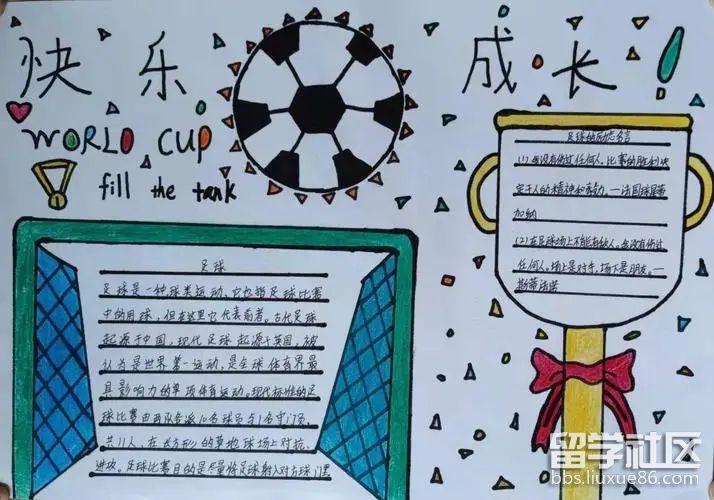 快乐
成长!
WORLD CUP
fill the tank
足球
足球是一种球类运动,它也指足球比赛
中的用球,但在这里它代表前者。古代足球
起源于中国,现代足球起源于英国,被
认为是世界第一运动,是全球体育界最
具影响力的单项体育运动。现代标准的足
球比赛由两队各派10名球员与1名守门员,
共11人,在长方形的草地球场上对抗、
进攻。足球比赛目的是尽量将足球射入对方球门里
足球的励志名言
(1)我没有伤过任何人,比赛的胜利决
定于人的精神和努力。—法国球星蒂
加纳
(2)在足球场上不能有敌人,我没有伤过
任何人。场上是对手,场下是朋友。—
斯蒂法诺
留学社区
bbs.liuxue86.com